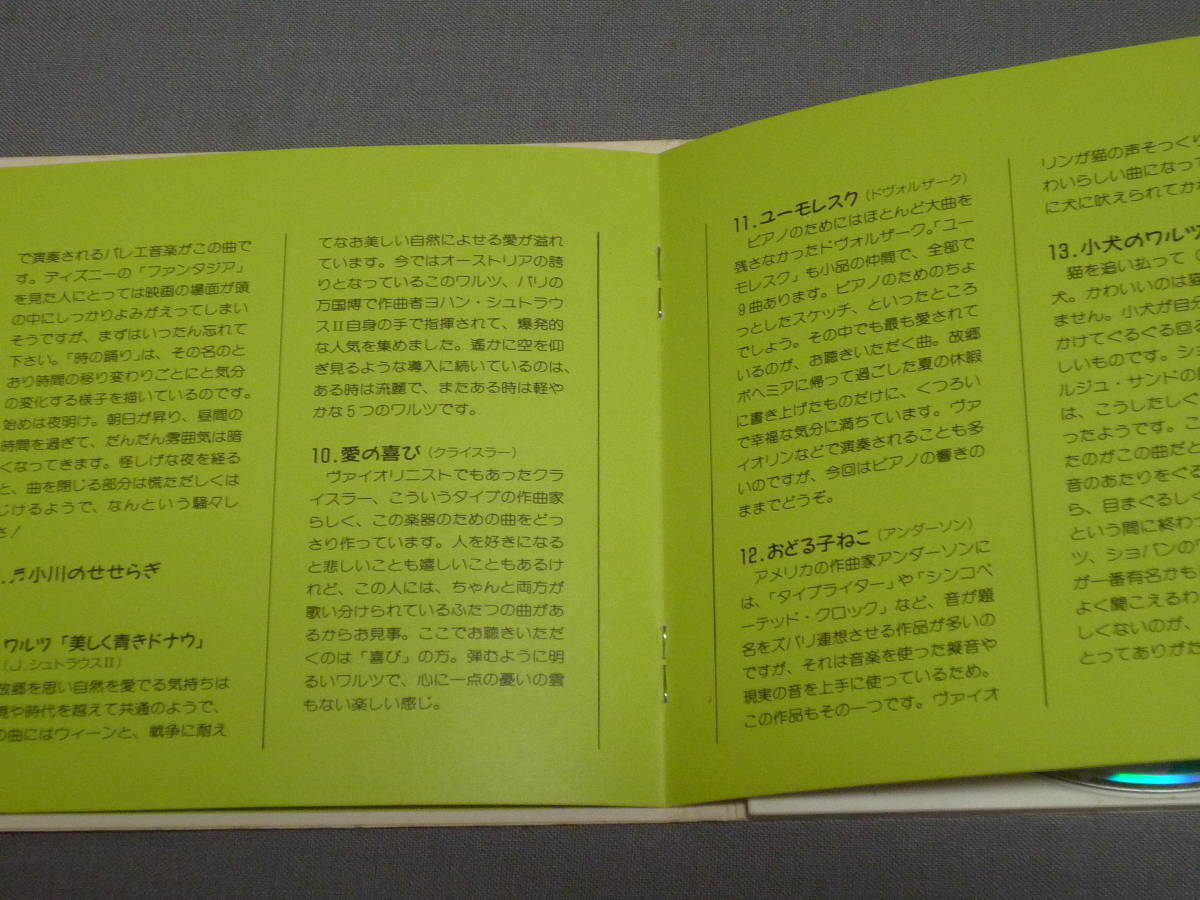 で演奏されるバレエ音楽がこの曲で
す。ディズニーの「ファンタジア」
を見た人にとっては映画の場面が頭
の中にしっかりよみがえってしまい
そうですが、まずはいったん忘れて
下さい。「時の踊り」は、その名のと
おり時間の移り変わりごとにと気分
の変化する様子を描いているのです。
始めは夜明け。朝日が昇り、昼間の
時間を過ぎて、だんだん雰囲気は暗
くなってきます。怪しげな夜を経る
と、曲を閉じる部分は慌ただしくは
じけるようで、なんという騒々し
さ!
.♬小川のせせらぎ
ワルツ「美しく青きドナウ」
(J.シュトラウスII)
故郷を思い自然を愛でる気持ちは
境や時代を越えて共通のようで、
の曲にはウィーンと、戦争に耐え
てなお美しい自然によせる愛が溢れ
ています。今ではオーストリアの誇
りとなっているこのワルツ、パリの
万国博で作曲者ヨハン・シュトラウ
スII自身の手で指揮されて、爆発的
な人気を集めました。遙かに空を仰
ぎ見るような導入に続いているのは、
ある時は流麗で、またある時は軽や
かな5つのワルツです。
10.愛の喜び(クライスラー)
ヴァイオリニストでもあったクラ
イスラー、こういうタイプの作曲家
らしく、この楽器のための曲をどっ
さり作っています。人を好きになる
と悲しいことも嬉しいこともあるけ
れど、この人には、ちゃんと両方が
歌い分けられているふたつの曲があ
るからお見事。ここでお聴きいただ
くのは「喜び」の方。弾むように明
るいワルツで、心に一点の憂いの雲
もない楽しい感じ。
11.ユーモレスク(ドヴォルザーク)
ピアノのためにはほとんど大曲を
残さなかったドヴォルザーク。「ユー
モレスク」も小品の仲間で、全部で
9曲あります。ピアノのためのちょ
っとしたスケッチ、といったところ
でしょう。その中でも最も愛されて
いるのが、お聴きいただく曲。故郷
ボヘミアに帰って過ごした夏の休暇
に書き上げたものだけに、くつろい
で幸福な気分に満ちています。ヴァ
イオリンなどで演奏されることも多
いのですが、今回はピアノの響きの
ままでどうぞ。
12.おどる子ねこ(アンダーソン)
アメリカの作曲家アンダーソンに
は、「タイプライター」や「シンコペ
ーテッド・クロック」など、音が題
名をズバリ連想させる作品が多いの
ですが、それは音楽を使った擬音や
現実の音を上手に使っているため。
この作品もその一つです。ヴァイオ
リンが猫の声そっくり
わいらしい曲になって
に犬に吠えられてか
13.小犬のワルツ
猫を追い払って(
犬。かわいいのは猫
ません。小犬が自分
かけてぐるぐる回る
しいものです。ショ
ルジュ・サンドの
は、こうしたしぐ
ったようです。こ
たのがこの曲だと
音のあたりをぐる
ら、目まぐるしく
という間に終わっ
ツ、ショパンのワ
が一番有名かも
よく聞こえるわ
しくないのが、
とってありがた